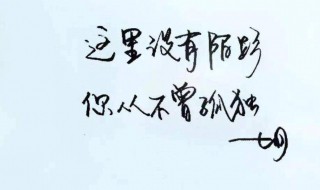 这里没有陌路
你从不曾孤独